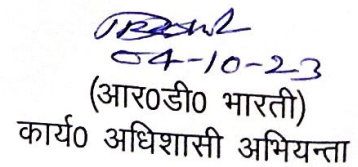 04-10-23
(आर0डी0 भारती)
कार्य0 अधिशासी अभियन्ता